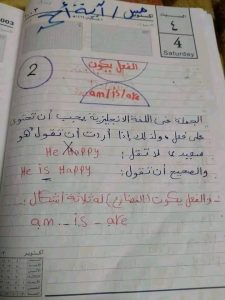 مس / آية
السبت
٤
4
Saturday
2
الفعل يكون
am/is/are
الجملة فى اللغة الإنجليزية يجب أن تحتوى
على فعل ولذلك إذا أردت أن تقول هو
سعيد لا تقل: He Happy
والصحيح أن تقول: He is Happy
- والفعل يكون (المضارع) له ثلاثة أشكال:-
am - is - are